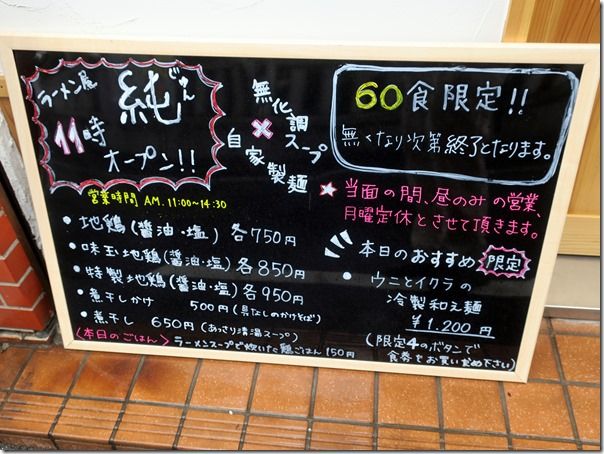 ラーメン屋
純じゅん
11時
オープン!!
無化調
スープ
×
自家製麺
60食限定!!
無くなり次第終了となります。
営業時間 AM. 11:00~14:30
★当面の間、昼のみの営業、
月曜定休とさせて頂きます。
• 地鶏(醤油・塩) 各750円
• 味玉地鶏(醤油・塩) 各850円
• 特製地鶏(醤油・塩) 各950円
• 煮干しかけ 500円(具なしのかけそば)
• 煮干し 650円(あっさり清湯スープ)
〈本日のごはん〉ラーメンスープで炊いた鶏ごはん150円
本日のおすすめ 限定
• ウニとイクラの
冷製和え麺
¥1,200円
(限定4のボタンで
食券をお買い求め下さい)